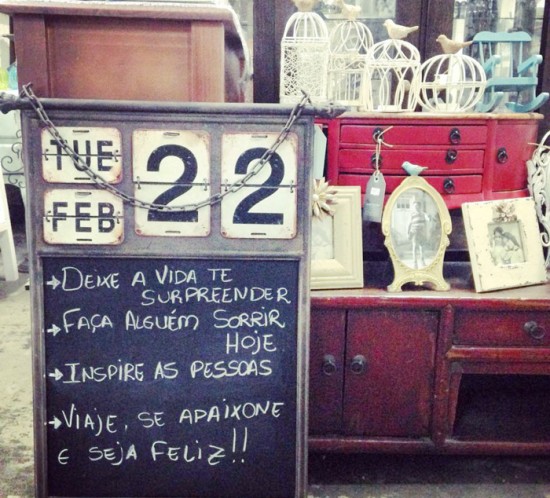 TUE
FEB
22
→ DEIXE A VIDA TE
SURPREENDER
→ FAÇA ALGUÉM SORRIR
HOJE
→ INSPIRE AS PESSOAS
→ VIAJE, SE APAIXONE
E SEJA FELIZ!!